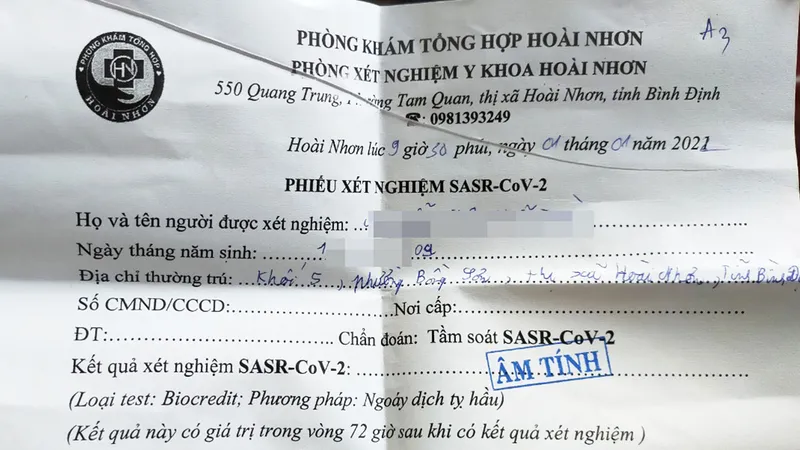 PHÒNG KHÁM TỔNG HỢP HOÀI NHƠN
A3
PHÒNG XÉT NGHIỆM Y KHOA HOÀI NHƠN
550 Quang Trung, Phường Tam Quan, thị xã Hoài Nhơn, tỉnh Bình Định
☎: 0981393249
PHÒNG KHÁM TỔNG HỢP
HN
HOÀI NHƠN
Hoài Nhơn lúc 9 giờ 30 phút, ngày 01 tháng 01 năm 2021
PHIẾU XÉT NGHIỆM SASR-CoV-2
Họ và tên người được xét nghiệm:
Ngày tháng năm sinh: 1 09
Địa chỉ thường trú: Khối 5, phường Bồng Sơn, thị xã Hoài Nhơn, Tỉnh Bình Đ
Số CMND/CCCD: Nơi cấp:
ĐT: Chẩn đoán: Tầm soát SASR-CoV-2
Kết quả xét nghiệm SASR-CoV-2: ÂM TÍNH
(Loại test: Biocredit; Phương pháp: Ngoáy dịch tỵ hầu)
(Kết quả này có giá trị trong vòng 72 giờ sau khi có kết quả xét nghiệm )